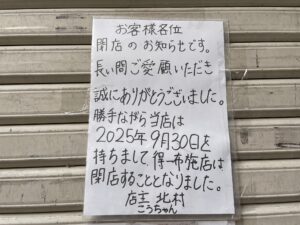 お客様各位
閉店のお知らせです。
長い間ご愛顧いただき
誠にありがとうございました。
勝手ながら当店は
2025年9月30日を
持ちまして得一布施店は
閉店することとなりました。
店主 北村
こうちゃん